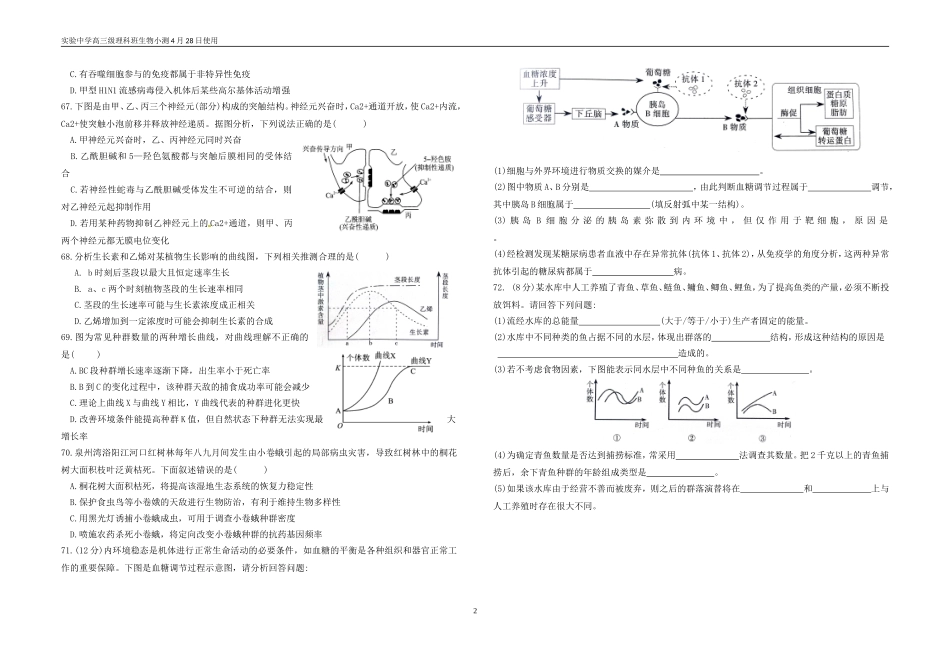 实验中学高三级理科班生物小测4月28日使用
C.有吞噬细胞参与的免疫都属于非特异性免疫
D.甲型H1N1流感病毒侵入机体后某些高尔基体活动增强
67.下图是由甲、乙、丙三个神经元(部分)构成的突触结构。神经元兴奋时,Ca2+通道开放,使Ca2+内流,
Ca2+使突触小泡前移并释放神经递质。据图分析，下列说法正确的是(　　)
A.甲神经元兴奋时，乙、丙神经元同时兴奋
B.乙酰胆碱和5—羟色氨酸都与突触后膜相同的受体结
合
C.若神经性蛇毒与乙酰胆碱受体发生不可逆的结合，则
对乙神经元起抑制作用
D.若用某种药物抑制乙神经元上的Ca2+通道，则甲、丙
两个神经元都无膜电位变化
兴奋传导方向 甲 乙
5-羟色胺
(抑制性递质)
Ca²⁺
Ca²⁺
乙酰胆碱
(兴奋性递质)
丙
68.分析生长素和乙烯对某植物生长影响的曲线图，下列相关推测合理的是(　　)
A. b时刻后茎段以最大且恒定速率生长
B. a、c两个时刻植物茎段的生长速率相同
C.茎段的生长速率可能与生长素浓度成正相关
D.乙烯增加到一定浓度时可能会抑制生长素的合成
植物茎中激素含量
茎段长度
茎段长度
乙烯
生长素
a b c 时间
69.图为常见种群数量的两种增长曲线，对曲线理解不正确的
是(　　)
A.BC段种群增长速率逐渐下降，出生率小于死亡率
B.B到C的变化过程中，该种群天敌的捕食成功率可能会减少
C.理论上曲线X与曲线Y相比，Y曲线代表的种群进化更快
D.改善环境条件能提高种群K值，但自然状态下种群无法实现最 大
增长率
个体数 曲线X 曲线Y
K
C
B
A
O 时间
70.泉州湾洛阳江河口红树林每年八九月间发生由小卷蛾引起的局部病虫灾害，导致红树林中的桐花
树大面积枝叶泛黄枯死。下面叙述错误的是(　　)
A.桐花树大面积枯死，将提高该湿地生态系统的恢复力稳定性
B.保护食虫鸟等小卷蛾的天敌进行生物防治，有利于维持生物多样性
C.用黑光灯诱捕小卷蛾成虫，可用于调查小卷蛾种群密度
D.喷施农药杀死小卷蛾，将定向改变小卷蛾种群的抗药基因频率
71.(12分)内环境稳态是机体进行正常生命活动的必要条件，如血糖的平衡是各种组织和器官正常工
作的重要保障。下图是血糖调节过程示意图，请分析回答问题:
血糖浓度上升
葡萄糖
抗体1
抗体2
组织细胞
葡萄糖感受器
下丘脑
A物质
胰岛B细胞
B物质
酶促
蛋白质
糖原
脂肪
葡萄糖
转运蛋白
(1)细胞与外界环境进行物质交换的媒介是　　　　。
(2)图中物质A、B分别是　　　　,由此判断血糖调节过程属于　　　　调节，
其中胰岛B细胞属于　　　　(填反射弧中某一结构)。
(3)胰岛B细胞分泌的胰岛素弥散到内环境中，但仅作用于靶细胞，原因是
。
(4)经检测发现某糖尿病患者血液中存在异常抗体(抗体1、抗体2),从免疫学的角度分析,这两种异常
抗体引起的糖尿病都属于　　　　病。
72.（8分)某水库中人工养殖了青鱼、草鱼、鲢鱼、鳙鱼、鲫鱼、鲤鱼,为了提高鱼类的产量,必须不断投
放饵料。请回答下列问题:
(1)流经水库的总能量　　　　(大于/等于/小于)生产者固定的能量。
(2)水库中不同种类的鱼占据不同的水层,体现出群落的　　　　结构,形成这种结构的原因是
　　　　造成的。
(3)若不考虑食物因素，下图能表示同水层中不同种鱼的关系是　　　　。
个体数 A B 时间 ①
个体数 A B 时间 ②
个体数 A B 时间 ③
(4)为确定青鱼数量是否达到捕捞标准,常采用　　　　法调查其数量。把2千克以上的青鱼捕
捞后，余下青鱼种群的年龄组成类型是　　　　。
(5)如果该水库由于经营不善而被废弃，则之后的群落演替将在　　　　和　　　　上与
人工养殖时存在很大不同。
2